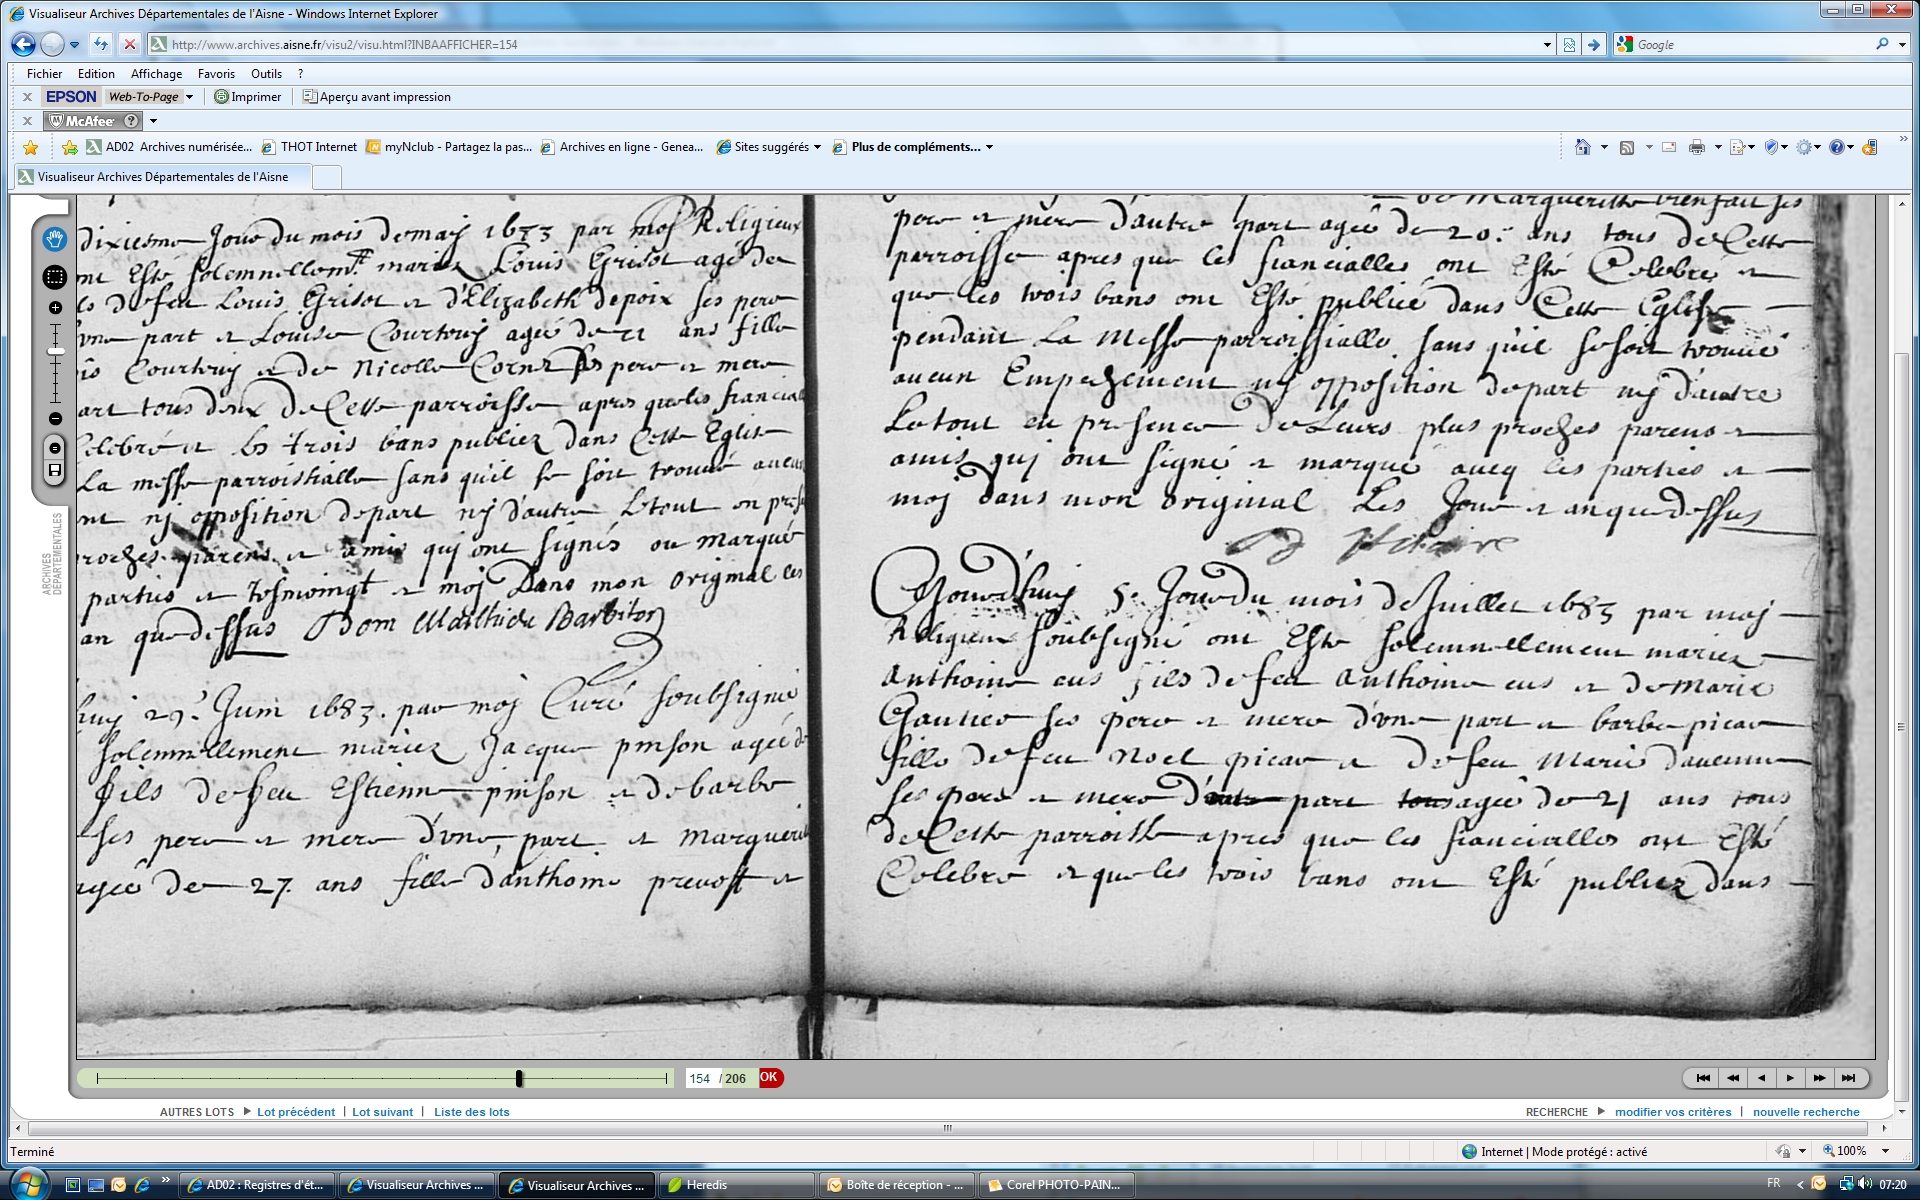 Visualiseur Archives Départementales de l'Aisne - Windows Internet Explorer
http://www.archives.aisne.fr/visu2/visu.html?INBAAFFICHER=154
Google
Fichier Edition Affichage Favoris Outils ?
x EPSON Web-To-Page Imprimer Aperçu avant impression
x McAfee ?
AD02 Archives numérisée... THOT Internet myNclub - Partagez la pas... Archives en ligne - Genea... Sites suggérés Plus de compléments...
Visualiseur Archives Départementales de l'Aisne
ARCHIVES
DÉPARTEMENTALES
dixiesme Jour du mois de may 1683 par moy Religieux
ont Esté solemnellemt mariez Louis Grisot agé de
de feu Louis Grisot et d'Elizabeth depoix ses pere
d'vne part et Louise Courtouy agée de 22 ans fille
Courtouy et de Nicolle Cornet ses pere et mere
part tous deux de Cette parroisse apres que les fiancial
Celebré et les trois bans publiez dans Cette Eglise
La messe parroissialle sans qu'il se soit trouué aucun
nt nj opposition de part nj d'autre Le tout en pres
proches parens et amis qui ont signés ou marqué
parties et tesmoingt et moj Dans mon original les
an que dessus Dom Matthieu Barbiton
huy 29e Juin 1683 par moj Curé soubsigné
solemnellement mariez Jacque pinson agée de
fils de feu Estienne pinson et de barbe
ses pere et mere d'vne part et marguerit
agée de 27 ans fille d'anthoine preuost et
Margueritte bienfait ses
pere et mere d'autre part agée de 20 ans tous de Cette
parroisse apres que les fiancialles ont Esté Celebré et
que les trois bans ont Esté publié dans Cette Eglise
pendant La Messe parroissialle sans qu'il se soit trouué
aucun Empeschement nj opposition de part nj d'autre
Le tout en presence de Leurs plus proches parens et
amis qui ont signé et marqué aueq les parties et
moj dans mon original Les Jour et an que dessus
D Hilaire
Ejourd'huy 5e Jour du mois de Juillet 1683 par moj
Religieux soubsigné ont Esté solemnellement mariez
Anthoine cus fils de feu Anthoine cus et de Marie
Gautier ses pere et mere d'vne part et barbe picar
fille de feu Noel picar et de feu Marie dauenne
ses pere et mere d'autre part tous agée de 21 ans tous
de Cette parroisse apres que les fiancialles ont Esté
Celebre et que les trois bans ont Esté publiez dans
154 / 206 OK
AUTRES LOTS Lot précédent | Lot suivant | Liste des lots
RECHERCHE modifier vos critères | nouvelle recherche
Terminé
Internet | Mode protégé : activé
100%
AD02 : Registres d'ét... Visualiseur Archives ... Visualiseur Archives ... Heredis Boîte de réception - ... Corel PHOTO-PAIN...
FR 07:20